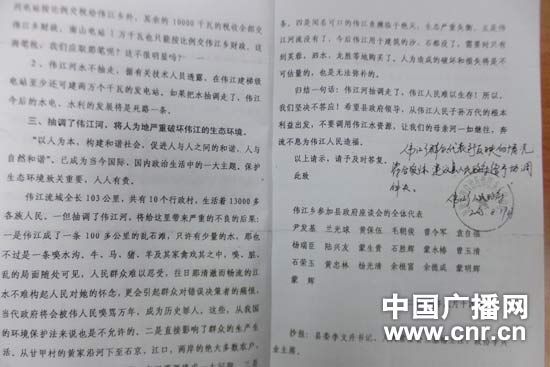 河电站按比例交税给伟江乡外，其余的 10000 千瓦的税收全部交
伟江乡财政。南山电站 1 万千瓦也只能按比例交伟江乡财政，这
2、伟江河水不抽走，据有关技术人员透露，在伟江建梯级
电站至少还可建两万个千瓦的发电站。如果水抽调走了，伟江
今后的水电、水利的发展将是死路一条。
三、抽调了伟江河，将人为地严重破坏伟江的生态环境。
“以人为本，构建和谐社会，促进人与人之间的和谐、人与
自然和谐”，已成为当今国际、国内政治生活中的一大主题。保护
生态环境致关重要，人人有责。
伟江流域全长 103 公里，共有 10 个行政村，生活着 13000 多
各族人民。一但抽调了伟江河，将给这里带来严重的不良的后果：
一是伟江成了一条 100 多公里的乱石滩，只许有少量的水，那也
不过是一条喂水沟，牛、马、猪、羊及其家禽戏其之中，喂、脏、
乱的局面随处可见，人民群众难以忍受，往日那清澈而畅流的江
水不难构起人民对她的怀念，更会引起群众对错误决策者的痛恨，
当代政府将会被伟人民唾骂万年，成为历史罪人，这些，从我国
的环境保护法来说也是不允许的。二是直接影响了群众的生产生
活。从甘甲村的黄家沿河下至石京，江口，两岸的绝大多数农户、
条。四是闻名可口的伟江鱼濒临于绝灭，生态严重失衡。五是伟
江河流没有了，今后伟江用于建筑的沙、石都没了，需要时只有
到芙蓉、泗水、龙胜等地购买了，人为造成的破坏和损失将是不
可估量的，也是无法弥补的。
归结一句话：伟江河抽调走了，伟江人民难以生存！所以，
我们坚决不答应！希望县政府领导，从伟江人民子孙万代的根本
利益出发，不要调用伟江水资源，让我们的母亲河一如继往，奔
流不息为伟江人民造福。
以上请示，请予及时答复。
伟江乡参加县政府座谈会的全体代表
尹发基 兰光球 黄保伍 毛朝俊 曹令军 袁自福
杨瑞臣 陆兴友 蒙生贵 石胜辉 蒙永椿 曾玉清
石荣玉 黄忠林 杨光清 余根富 余德成 蒙明辉
蒙 辉
抄报：县委李文丹书记、
业主席。
中国广播网
www.cnr.cn